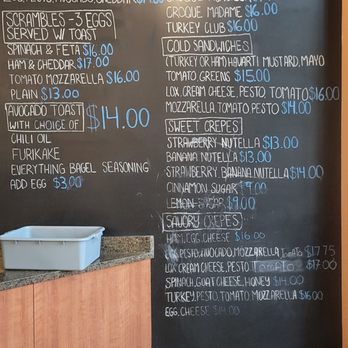 SCRAMBLES - 3 EGGS
SERVED W/ TOAST
SPINACH & FETA $16.00
HAM & CHEDDAR $17.00
TOMATO MOZZARELLA $16.00
PLAIN $13.00
AVOCADO TOAST
WITH CHOICE OF $14.00
CHILI OIL
FURIKAKE
EVERYTHING BAGEL SEASONING
ADD EGG $3.00
CROQUE MADAME $16.00
TURKEY CLUB $16.00
COLD SANDWICHES
(TURKEY OR HAM) HAVARTI MUSTARD, MAYO
TOMATO GREENS $15.00
LOX, CREAM CHEESE, PESTO TOMATO $16.00
MOZZARELLA TOMATO PESTO $14.00
SWEET CREPES
STRAWBERRY NUTELLA $13.00
BANANA NUTELLA $13.00
STRAWBERRY BANANA NUTELLA $14.00
CINNAMON SUGAR $9.00
LEMON SUGAR $9.00
SAVORY CREPES
HAM, EGG, CHEESE $16.00
PESTO, AVOCADO, MOZZARELLA, TOMATO $17.75
LOX, CREAM CHEESE, PESTO TOMATO $17.00
SPINACH, GOAT CHEESE, HONEY $14.00
TURKEY, PESTO, TOMATO, MOZZARELLA $16.00
EGG, CHEESE $14.00